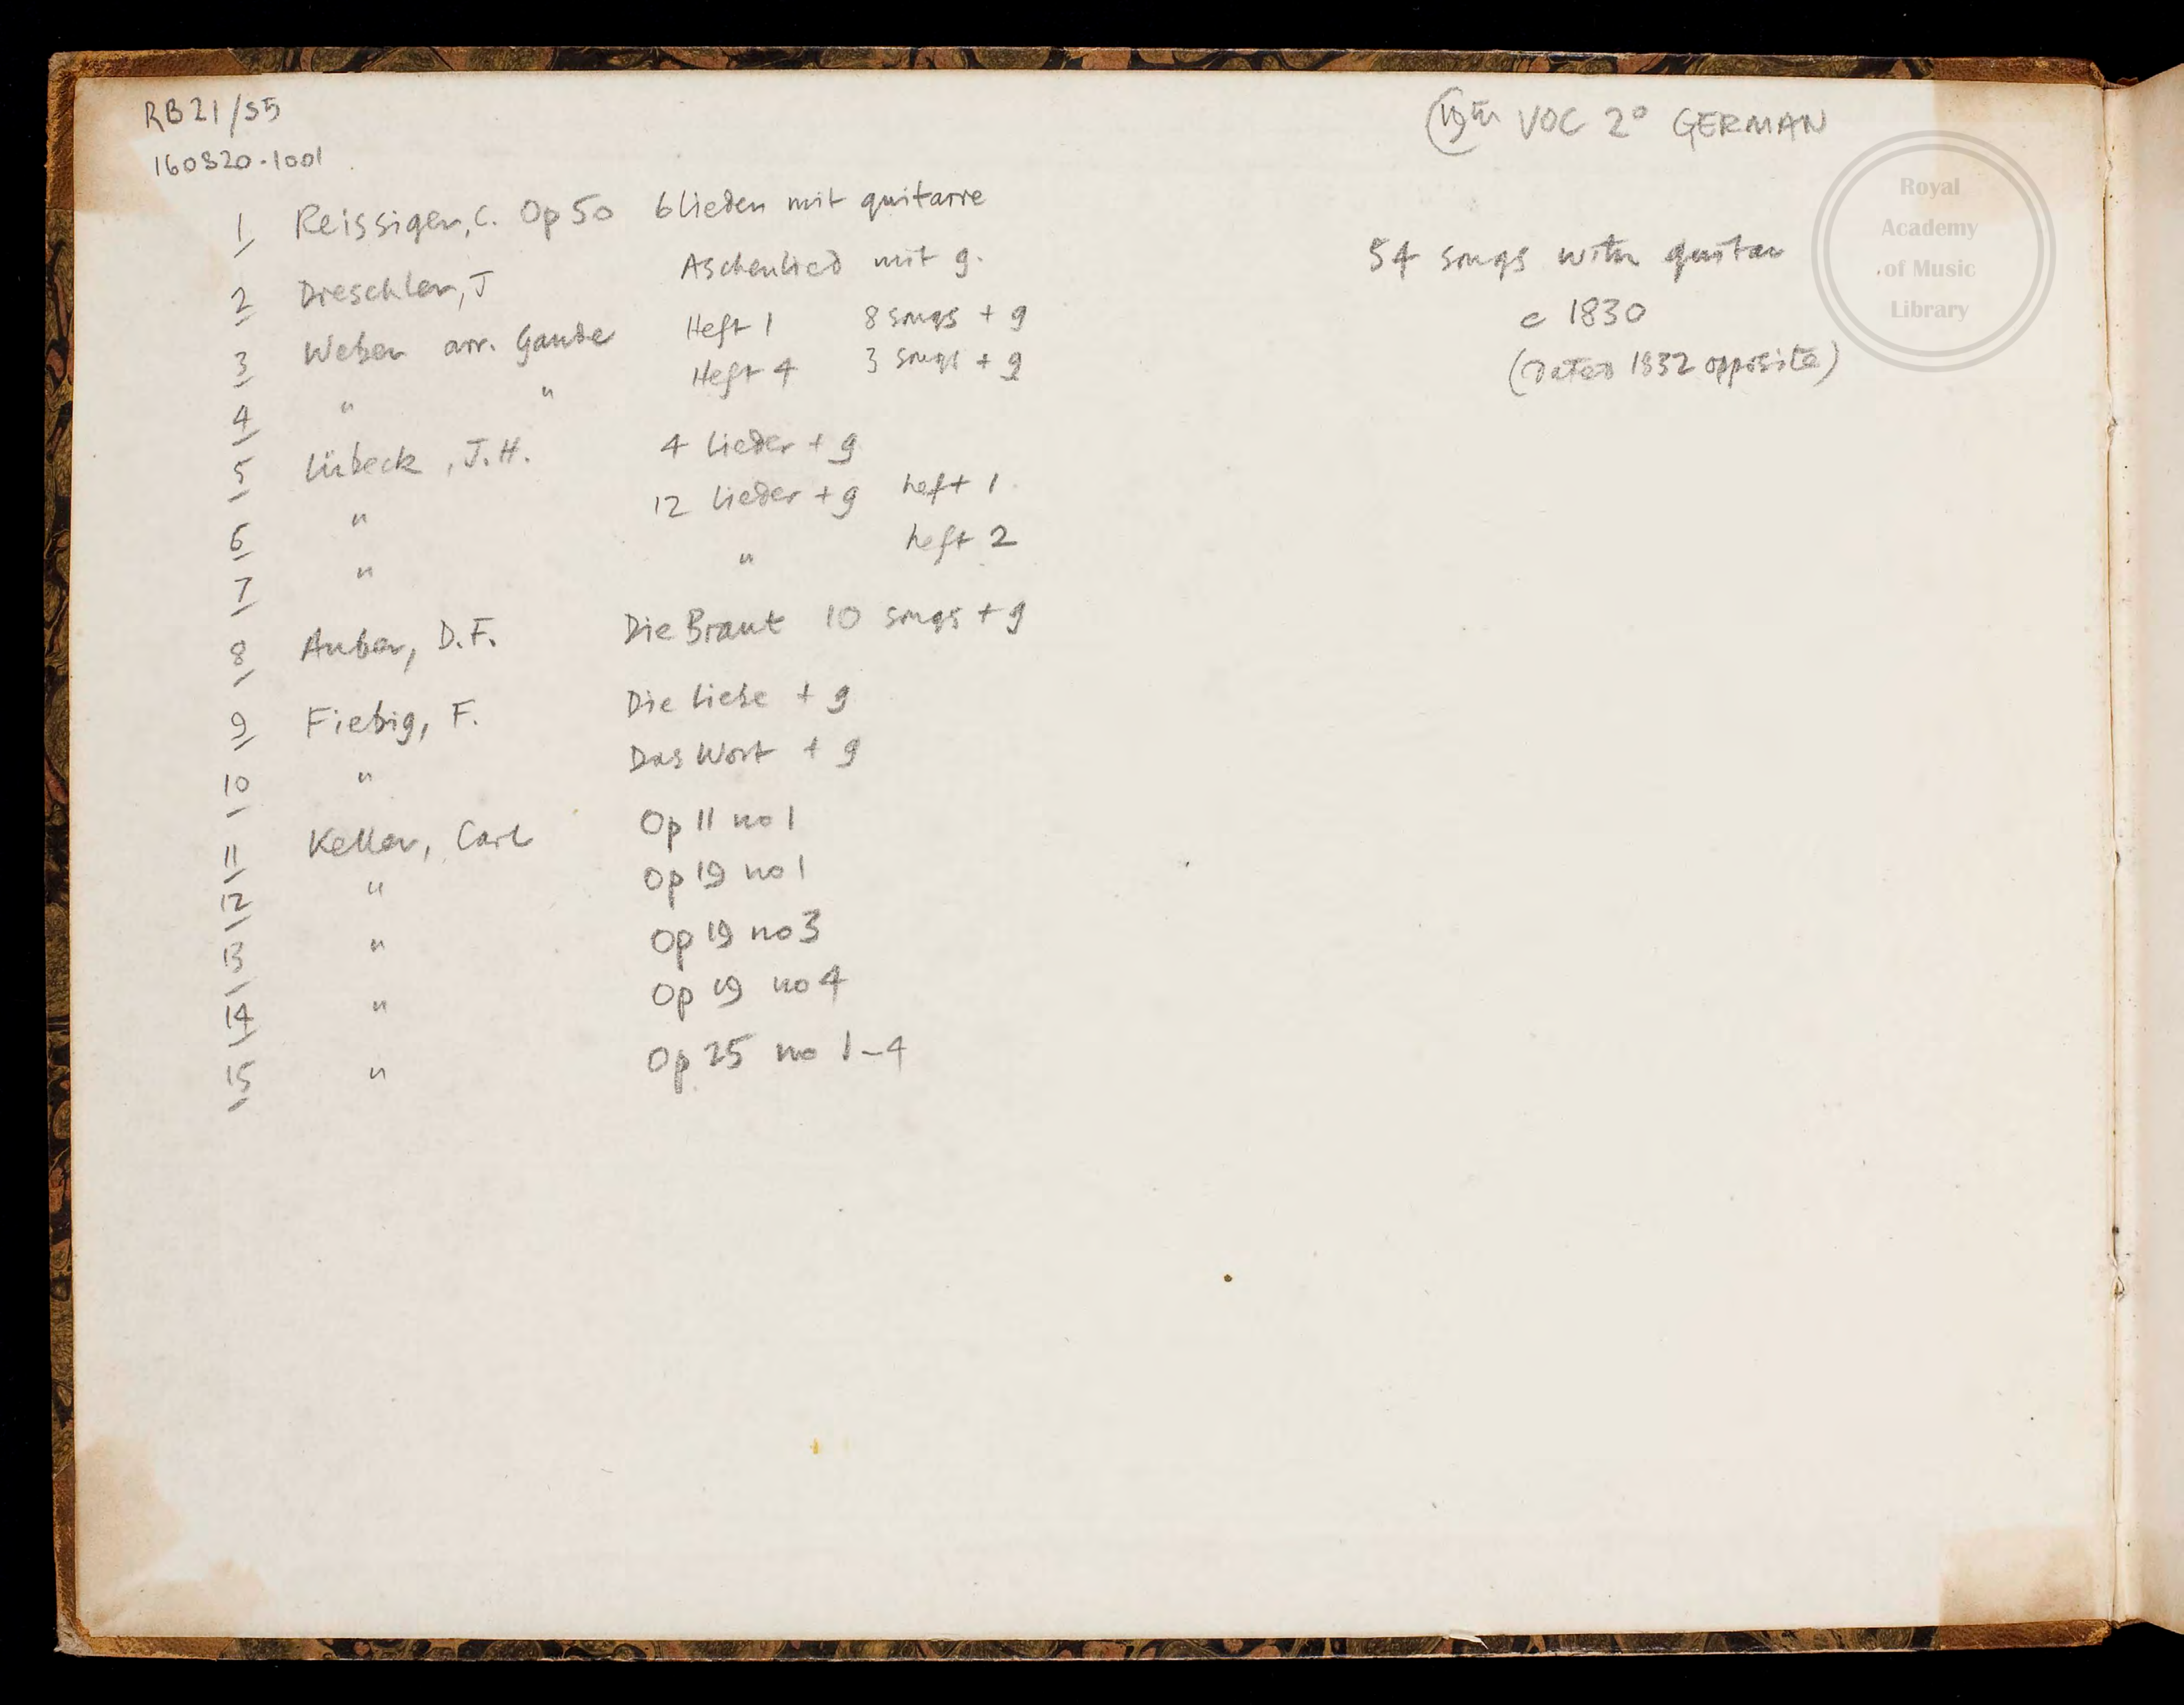 RB21/S5
160820-1001
19th VOC 2° GERMAN
Royal
Academy
of Music
Library
54 songs with guitar
c 1830
(Dated 1832 opposite)
1 Reissiger, C. Op 50 6 Lieder mit guitarre
2 Dreschler, J Aschenlied mit g.
3 Weber arr. Gaude Heft 1 8 songs + g
4 " " Heft 4 3 songs + g
5 Lübeck, J.H. 4 Lieder + g
6 " 12 Lieder + g heft 1
7 " " heft 2
8 Auber, D.F. Die Braut 10 songs + g
9 Fiebig, F. Die Liebe + g
10 " Das Wort + g
11 Keller, Carl Op 11 no 1
12 " Op 19 no 1
13 " Op 19 no 3
14 " Op 19 no 4
15 " Op 25 no 1-4